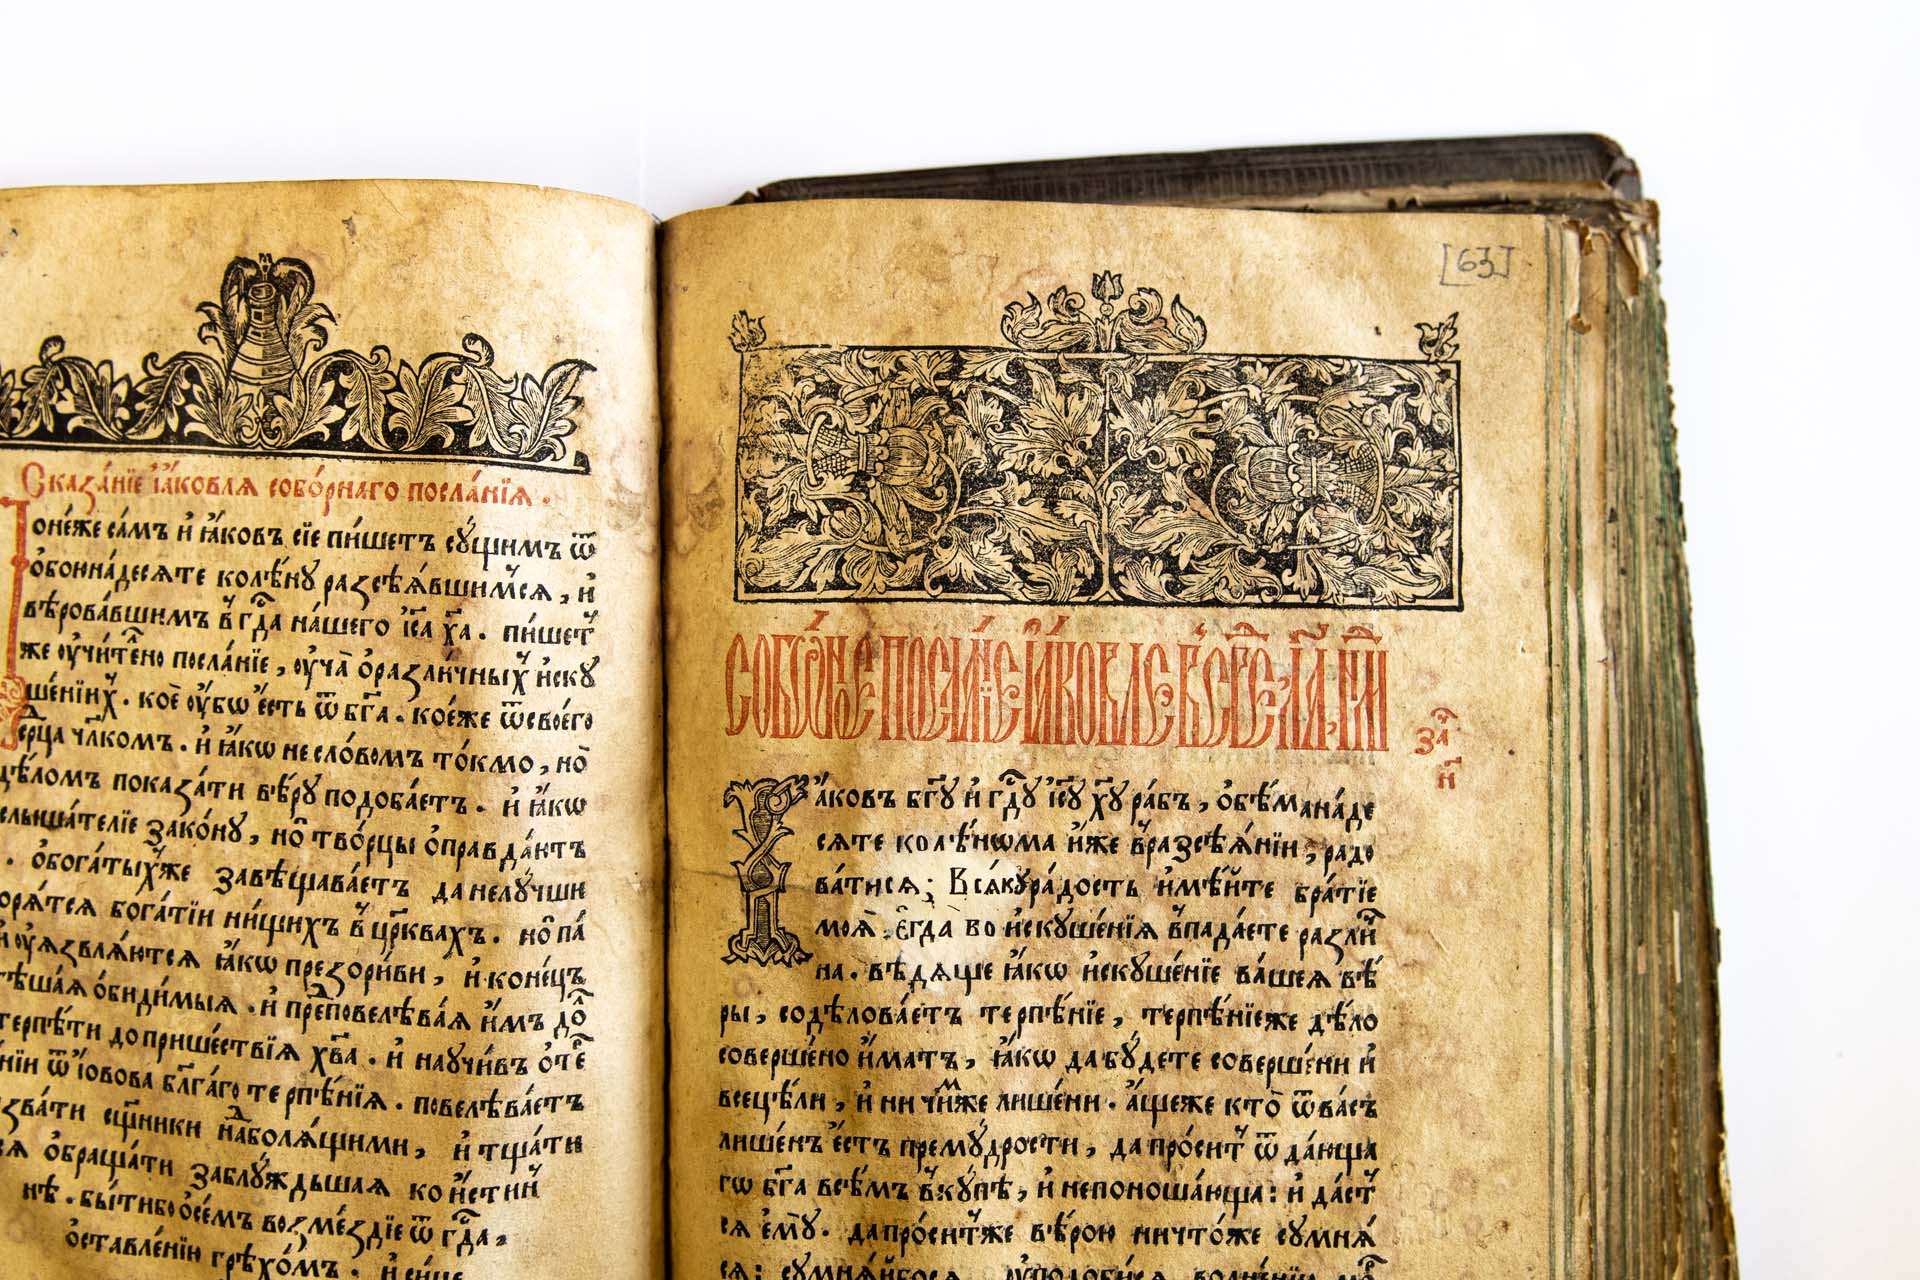 Сказа́нїе і҆а́ковлѧ собо́рнаго посла́нїѧ.
Поне́же са́мъ и҆ і҆а́ковъ сїе пи́шетъ су́щимъ ѿ
ѻ҆боннадесѧте колѣ́ну разсѣѧ́вшимсѧ, и҆
вѣрова́вшимъ в гдⷭ҇а на́шего і҆с҃а хр҃та. пи́шет
же ᲂу҆чи́телⷩ҇о посла́нїе, ᲂу҆ча̀ ѡ҆разли́чных и҆ску
ше́нїих. коѐ ᲂу҆́бѡ є҆́сть ѿ бг҃а. кое́же ѿ своего̀
се́рⷣца чл҃комъ. и҆ ꙗ҆́кѡ не сло́вомъ то́кмо, но̀
дѣ́ломъ показа́ти вѣ́ру подоба́етъ. и҆ ꙗ҆́кѡ
слы́шателїе зако́ну, но̀ тво́рцы ѡ҆правда́ютъ
. ѡ҆бога́тыхже завѣщава́етъ да не лу́чше
орѧ́тсѧ бога́тїи ни́щихъ в цр҃квахъ. но̀ па́
и҆ ᲂу҆ѧзвлѧ́ютсѧ ꙗ҆́кѡ презори́ви, и҆ коне́цъ
тѣ́шаѧ ѻ҆би́димыѧ. и҆ преⷣповелѣва́ѧ и҆̀мъ до́л
терпѣ́ти до прише́ствїѧ хрⷭ҇то́ва. и҆ научи́въ ѡ҆ те
нїи ѿ і҆о́вова бл҃га́го терпѣ́нїѧ. повелѣва́етъ
зва́ти сщ҃е́нники надболѧ́щими, и҆ тща́ти
сѧ ѡ҆браща́ти заблу́ждьшаѧ ко и҆́стин
нѣ. бы́ти бо ѻ҆се́мъ возме́здїе ѿ гдⷭ҇а,
ѡ҆ставле́нїю грѣхо́мъ. и҆ си́це
[63]
Собо́рное посла́нїе і҆а́ковле
зача́
н҃
І҆а́ковъ бг҃у и҆ гдⷭ҇у і҆с҃у хр҃ту ра́бъ, ѻ҆бѣ́манаде
сѧте колѣ́нома и҆́же в разсѣѧ́нїи, радо
ватисѧ; Всѧ́ку ра́дость и҆мѣ́йте бра́тїе
моѧ̀. є҆гда̀ во и҆скуше́нїѧ впада́ете разли́ч
на. вѣ́дѧще ꙗ҆́кѡ и҆скуше́нїе ва́шеѧ вѣ́
ры, содѣлова́етъ терпѣ́нїе, терпѣ́нїе же дѣ́ло
соверше́но и҆́мать, ꙗ҆́кѡ да бу́дете соверше́ни и҆
всецѣ́ли, и҆ ни в чи́мже лише́ни. а҆́ще же кто̀ ѿ ва́съ
лише́нъ є҆́сть прему́дрости, да про́ситъ ѿ даю́ща
гѡ бг҃а всѣ́мъ вку́пѣ, и҆ непоноша́юща: и҆ да́ст
сѧ є҆мꙋ̀. да про́ситже вѣ́рою ничто́же сумнѧ́
сѧ: сумнѧ́йбосѧ, ᲂу҆подо́бисѧ волне́нїю мо́р